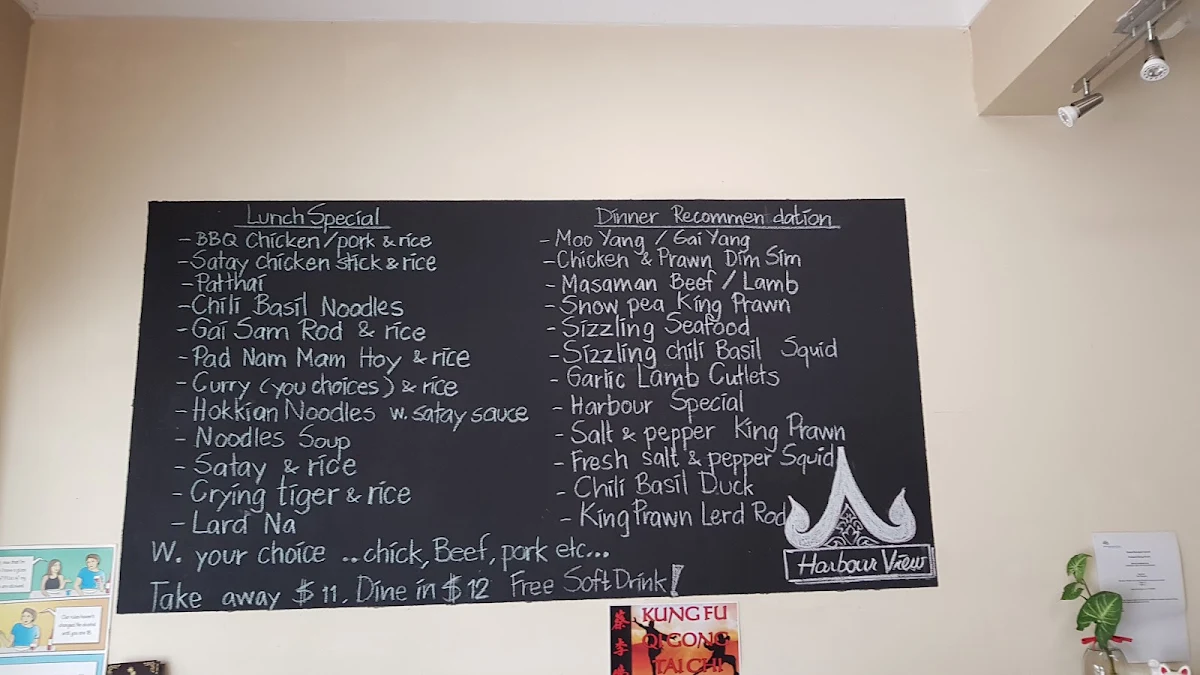 Lunch Special
- BBQ Chicken/pork & rice
- Satay chicken stick & rice
- Patthai
- Chili Basil Noodles
- Gai Sam Rod & rice
- Pad Nam Mam Hoy & rice
- Curry (you choices) & rice
- Hokkian Noodles w. satay sauce
- Noodles Soup
- Satay & rice
- Crying tiger & rice
- Lard Na
W. your choice ... chick, Beef, pork etc...
Take away $11. Dine in $12 Free Soft Drink!
Dinner Recommendation
- Moo Yang / Gai Yang
- Chicken & Prawn Dim Sim
- Masaman Beef / Lamb
- Snow pea King Prawn
- Sizzling Seafood
- Sizzling chili Basil Squid
- Garlic Lamb Cutlets
- Harbour Special
- Salt & pepper King Prawn
- Fresh salt & pepper Squid
- Chili Basil Duck
- King Prawn Lerd Rod
Harbour View
KUNG FU
QI GONG
TAI CHI
蔡李